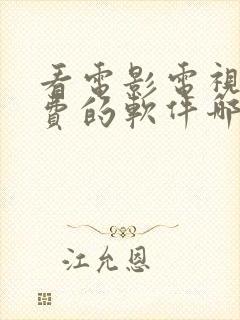 看電影電視
費的軟件哪
江允恩